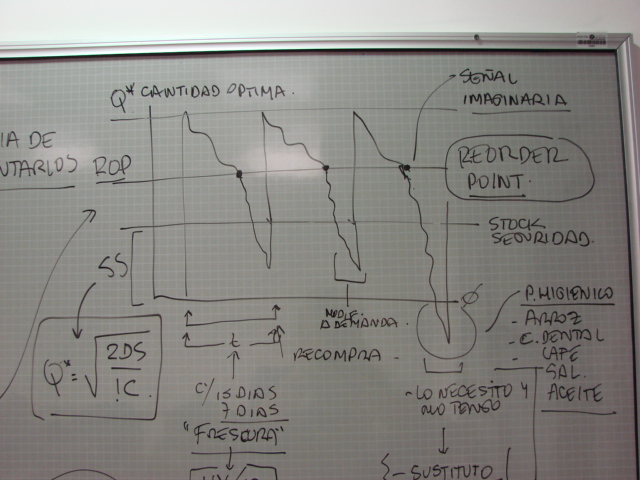 Q* CANTIDAD OPTIMA.
SEÑAL
IMAGINARIA
IA DE
NTARIOS
ROP
REORDER
POINT.
STOCK
SEGURIDAD.
SS
Ø
P. HIGIENICO
- ARROZ
- C. DENTAL
- CAFE
- SAL.
ACEITE
A DEMANDA.
t
RECOMPRA -
Q* = √ 2DS
IC
C/ 15 DIAS
7 DIAS
"FRESCURA"
- LO NECESITO Y
NO TENGO
- SUSTITUTO